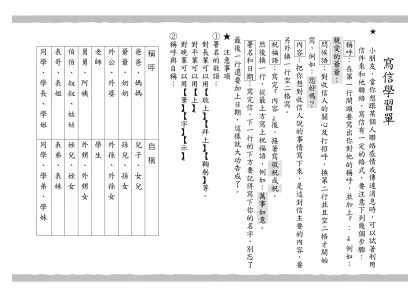 寫信學習單
★ 小朋友,當你想跟某個人聯絡感情或傳達消息時,可以試著利用
信件來和他聯絡。寫信有一定的格式,要注意下列幾個步驟:
稱呼:在第一行開頭要寫出你對他的稱呼,並加上『:』例如:
親愛的爺爺:
問候語:對收信人的關心及打招呼,換第二行並且空二格才開始
寫,例如:您好嗎?
內容:把你想對收信人說的事情寫下來,是這封信主要的內容,要
另外換一行空二格寫。
祝福語:寫完『內容』後,接著寫敬祝或祝,
然後換一行,從最上方寫上祝福語,例如:萬事如意。
署名和日期:寫完信,下一行的下方要記得寫下你的名字,別忘了
最後一行還要加上日期,這樣就大功告成了。
★ 注意事項
① 署名的敬語:
對長輩可以用【敬上】【拜上】【鞠躬】等。
對平輩可以用【上】
對晚輩可以用【筆】【字】【示】
② 稱呼與自稱:
稱呼 自稱
爸爸、媽媽 兒子、女兒
爺爺、奶奶 孫子、孫女
外公、外婆 外孫、外孫女
老師 學生
舅舅、阿姨 外甥、外甥女
伯伯、叔叔、姑姑 姪兒、姪女
表哥、表姐 表弟、表妹
同學、學長、學姐 同學、學弟、學妹